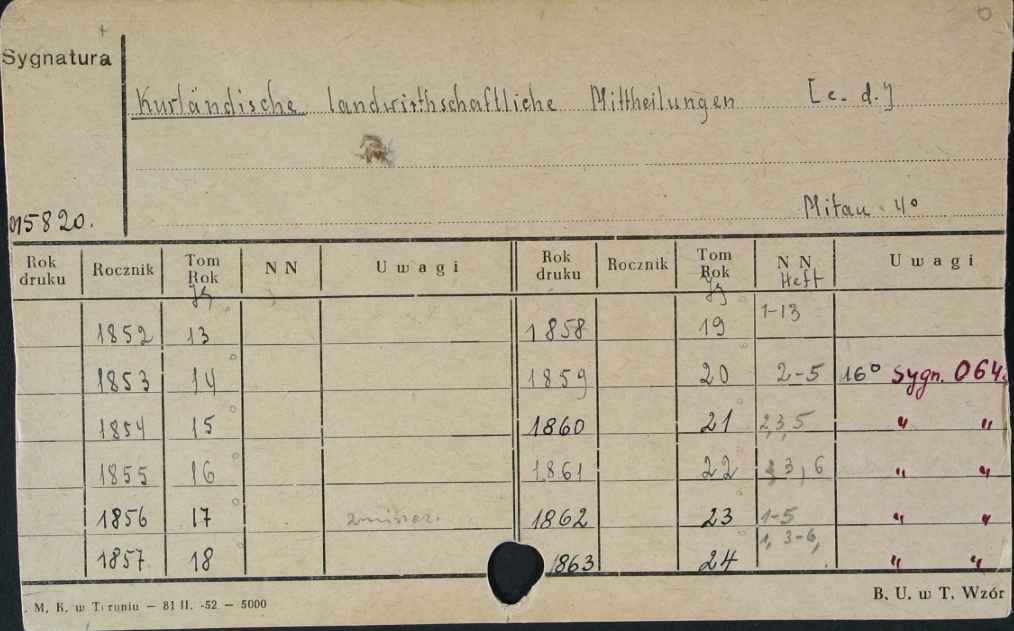 Sygnatura
Kurländische landwirthschaftliche Mittheilungen [c. d.]
Mitau 4°
015820.
Rok druku Rocznik Tom Rok Jg N N U w a g i Rok druku Rocznik Tom Rok Jg N N Heft U w a g i
1852 13 1858 19 1-13
1853 14 1859 20 2-5 16° Sygn. 064.
1854 15 1860 21 2,3,5 " "
1855 16 1861 22 3, 6 " "
1856 17 1862 23 1-5 " "
1857 18 1863 24 1, 3-6, " "
. M. K. w Toruniu — 81 II. -52 — 5000
B. U. w T. Wzór